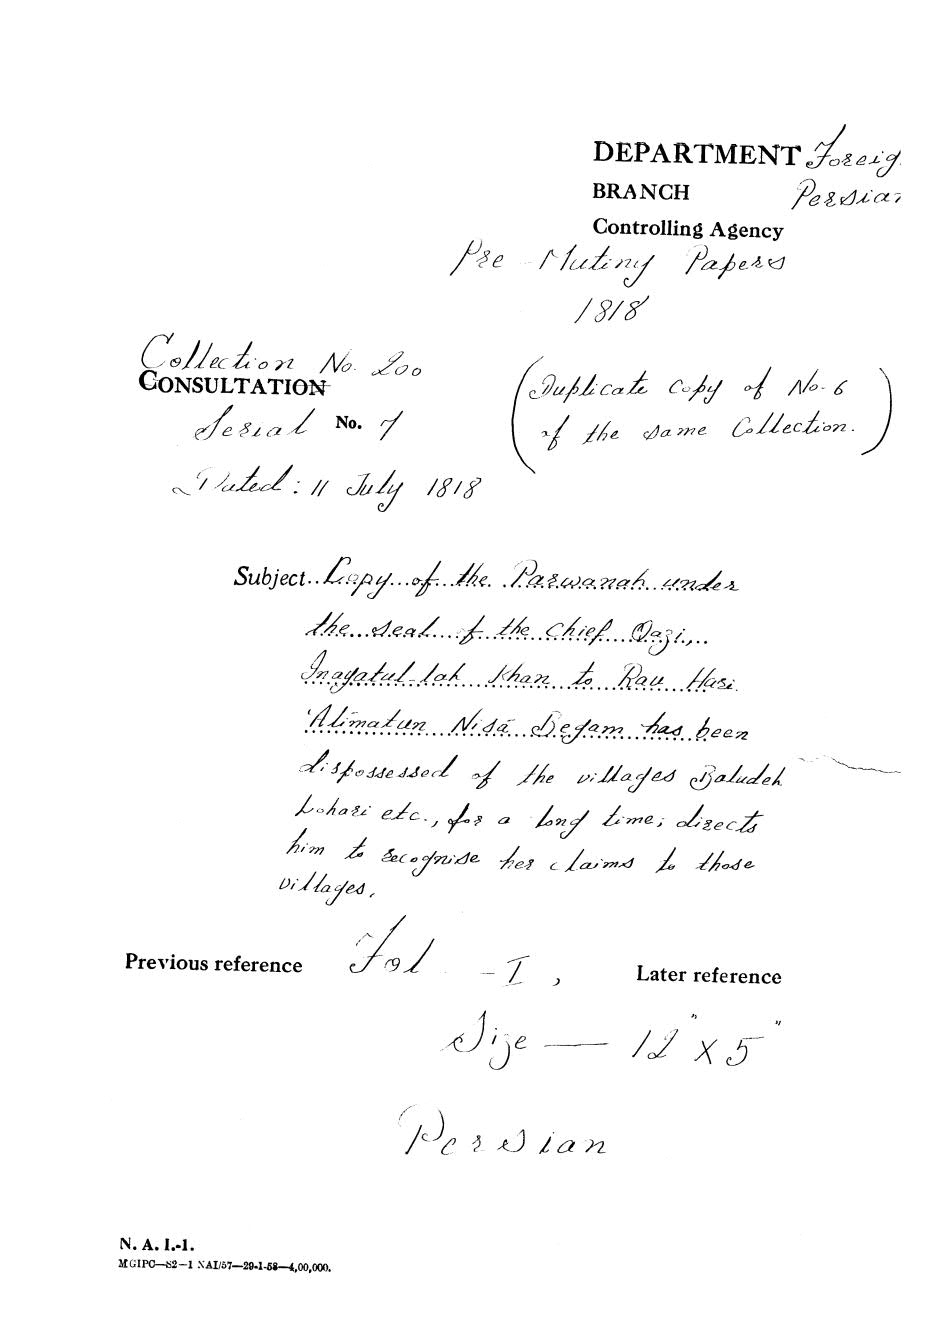 DEPARTMENT Foreig
BRANCH Persian
Controlling Agency
Pre-Mutiny Papers
1818
Collection No. 200
CONSULTATION
Serial No. 7
(Duplicate copy of No. 6
of the same Collection.)
Dated: 11 July 1818
Subject.. Copy of the Parwanah under
the seal of the Chief Qazi,
Inayatul-lah Khan to Rau Hari.
'Alimatun Nisā Begam has been
dispossessed of the villages Baludeh
Lohari etc., for a long time; directs
him to recognise her claims to those
villages.
Previous reference Fol -I, Later reference
Size — 12" x 5"
Persian
N. A. I.-1.
MGIPC—S2—1 NAI/57—29-1-58—4,00,000.